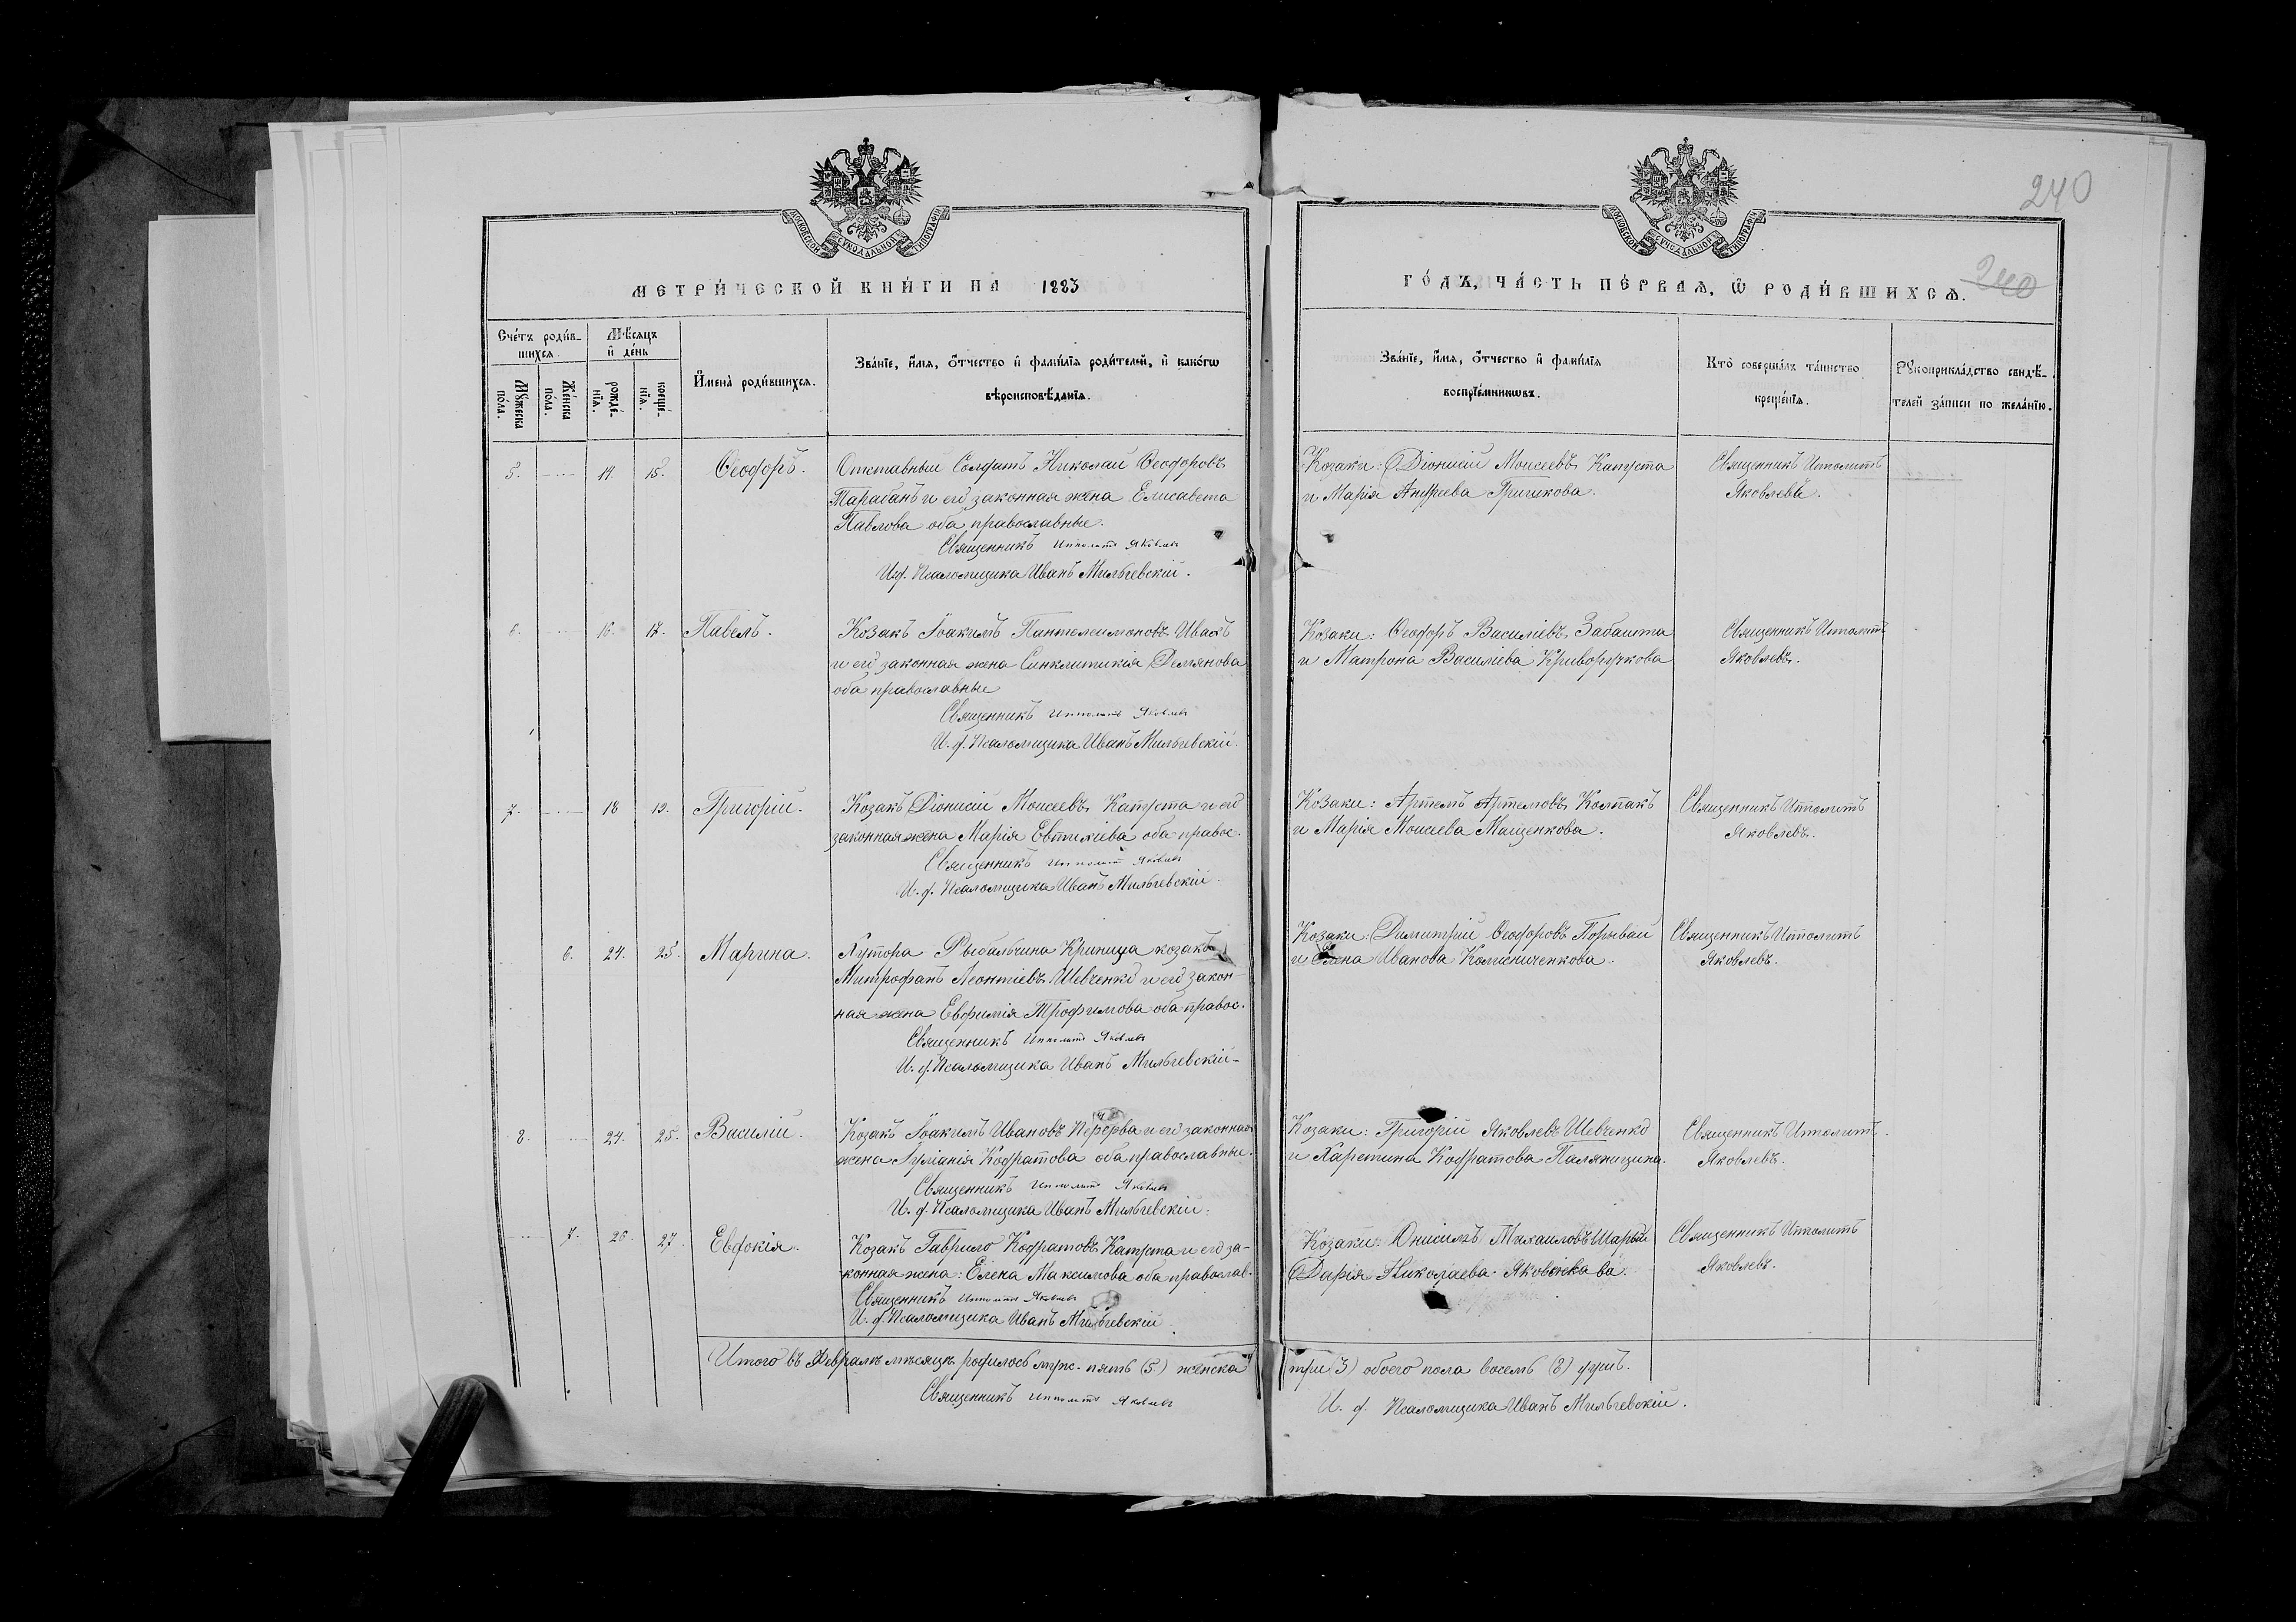 240
240
МОСКОВСКОЙ СѴНОДАЛЬНОЙ ТИПОГРАФІИ
МОСКОВСКОЙ СѴНОДАЛЬНОЙ ТИПОГРАФІИ
МЕТРИ́ЧЕСКОЙ КНИ́ГИ НА 1883
ГО́ДЪ, ЧА́СТЬ ПЕ́РВАѦ, Ѿ РОДИ́ВШИХСѦ.
Сче́тъ роди́в-
шихсѧ.
Мꙋ́жеска
по́ла.
Же́нска
по́ла.
Мѣ́сѧцъ
и҆ де́нь
рожде́-
нїѧ.
креще́-
нїѧ.
И҆мена̀ роди́вшихсѧ.
Зва́нїе, и҆́мѧ, ѻ҆́тчество и҆ фами́лїѧ роди́телей, и҆ како́гѡ
вѣроисповѣ́данїѧ.
Зва́нїе, и҆́мѧ, ѻ҆́тчество и҆ фами́лїѧ
воспрїе́мникѡвъ.
Кто̀ соверша́лъ та́инство
креще́нїѧ.
Рꙋкоприкла́дство свидѣ́-
телей за́писи по жела́нїю.
5. 14. 15. Ѳеодоръ.
Отставный Солдатъ Николай Ѳеодоровъ
Тарабанъ и его законная жена Елисавета
Павлова оба православные.
Священникъ Ипполитъ Яковлевъ
И.д. Псаломщика Иванъ Мильгевскій.
Козаки: Діонисій Моисеевъ Капуста
и Марія Андреева Гришкова.
Священникъ Иполитъ
Яковлевъ.
6. 16. 17. Павелъ.
Козакъ Іоакимъ Пантелеимоновъ Ивахъ
и его законная жена Синклитикія Демянова
оба православные
Священникъ Ипполитъ Яковлевъ
И. д. Псаломщика Иванъ Мильгевскій.
Козаки: Ѳеодоръ Василіевъ Забашта
и Матрона Василіева Криворучкова
Священникъ Иполитъ
Яковлевъ.
7. 18 19. Григорій.
Козакъ Діонисій Моисеевъ Капуста и его
законная жена Марія Евтихіева оба правос.
Священникъ Ипполитъ Яковлевъ
И. д. Псаломщика Иванъ Мильгевскій.
Козаки: Артемъ Артемовъ Колпакъ
и Марія Моисеева Мищенкова.
Священникъ Иполитъ
Яковлевъ.
6. 24. 25. Марина.
Хутора Рыбальчина Криница козакъ
Митрофанъ Леонтіевъ Шевченко и его закон-
ная жена Евфимія Трофимова оба правос.
Священникъ Ипполитъ Яковлевъ
И. д. Псаломщика Иванъ Мильгевскій
Козаки: Димитрій Ѳеодоровъ Порывай
и Елена Иванова
Священникъ Иполитъ
Яковлевъ.
8. 24. 25. Василій.
Козакъ Іоакимъ Ивановъ Перерва и его законная
жена Іуліанія Кодратова оба православные.
Священникъ Ипполитъ Яковлевъ
И. д. Псаломщика Иванъ Мильгевскій.
Козаки: Григорій Яковлевъ Шевченко
и Харетина Кодратова Паляницина.
Священникъ Иполитъ
Яковлевъ.
7. 26. 27. Евдокія.
Козакъ Гаврило Кодратовъ Капуста и его за-
конная жена: Елена Максимова оба православ.
Священникъ Ипполитъ Яковлевъ
И. д. Псаломщика Иванъ Мильгевскій
Козаки: Онисимъ Михаиловъ Шарый
Дарія Николаева
Священникъ Иполитъ
Яковлевъ.
Итого въ Февралѣ мѣсяцѣ родилось муж. пять (5) женска три (3) обоего пола восемь (8) душъ.
Священникъ Ипполитъ Яковлевъ
И. д. Псаломщика Иванъ Мильгевскій.